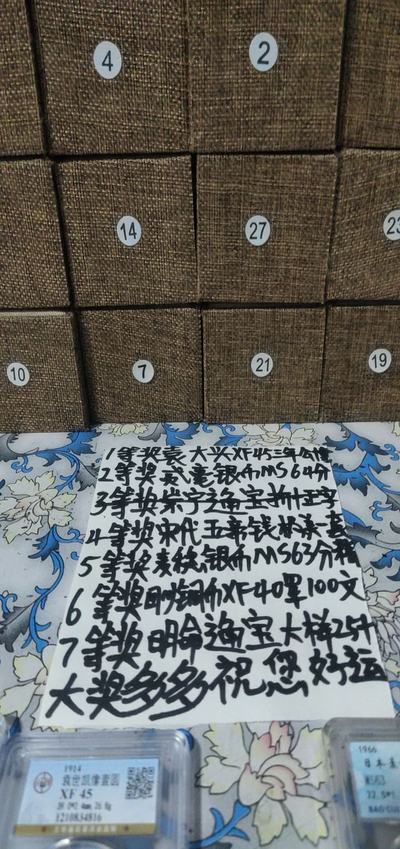 4
2
14
27
23
10
7
21
19
1等奖袁大头XF45三年
2等奖贰毫银币MS64分
3等奖崇宁通宝折十
4等奖宋代五帝钱
5等奖 银币MS63分
6等奖 铜币XF40 100文
7等奖明命通宝大样25
大奖多多祝您好运
1914
袁世凯像壹圆
XF 45
1210834816
1966
日本
MS63